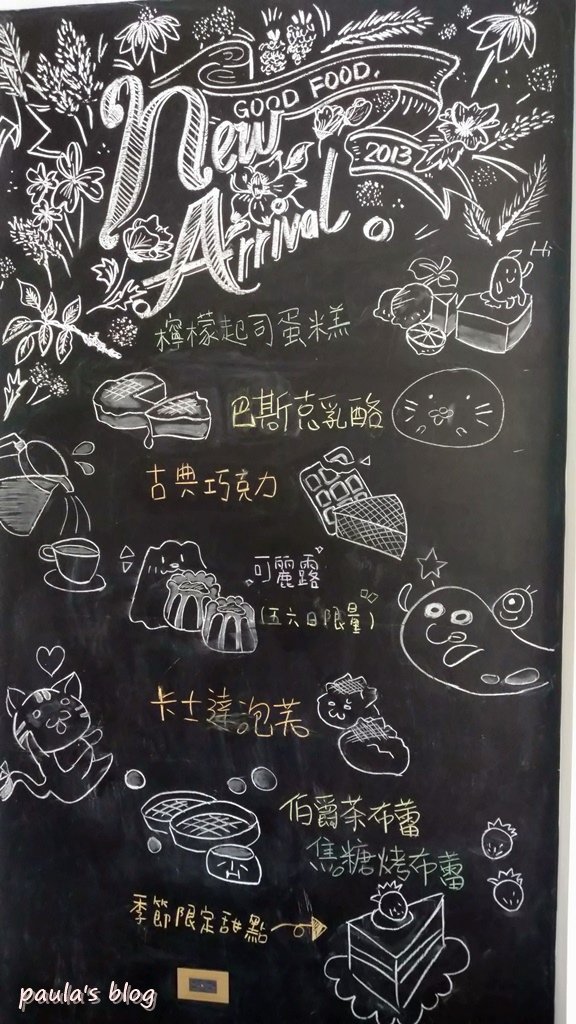 GOOD FOOD.
New
2013
Arrival
Hi
檸檬起司蛋糕
巴斯克乳酪
古典巧克力
可麗露
(五六日限量)
卡士達泡芙
伯爵茶布蕾
焦糖烤布蕾
季節限定甜點
paula's blog